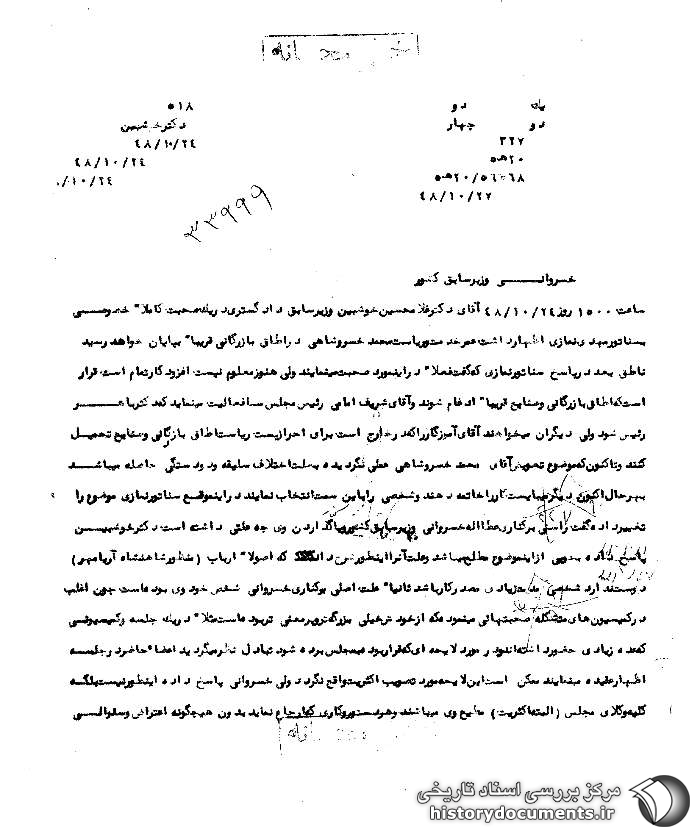 خیلی محرمانه
یک دو ۵۱۸
دو چهار دکتر خوشبین
۳۲۷ ۴۸/۱۰/۲۴
۲۰ه۵ ۴۸/۱۰/۲۴
۴۸/۱۰/۲۷ ۱۰/۲۴/
۳۳۹۹۹
خسروانی وزیر سابق کشور
ساعت ۱۵۰۰ روز ۴۸/۱۰/۲۴ آقای دکتر غلامحسین خوشبین وزیر سابق دادگستری در یک صحبت کاملا" خصوصی
بسناتور مهدی نمازی اظهار داشت عمر خد متو ریاست محمد خسروشاهی در اطاق بازرگانی قریبا" بپایان خواهد رسید
ناطق بعد در پاسخ سناتور نمازی که گفت فعلا" در اینمورد صحبت مینمایند ولی هنوز معلوم نیست افزود کار تمام است قرار
است که اطاق بازرگانی و صنایع قریبا" ادغام شوند و آقای شریف امامی رئیس مجلس سنا فعالیت مینماید که دکتر
رئیس شود ولی دیگران میخواهند آقای آموزگار را که در خارج است برای احراز پست ریاست اطاق بازرگانی و صنایع تحمیل
کنند و تاکنون که موضوع تعویض آقای محمد خسروشاهی عملی نگردیده بعلت اختلاف سلیقه و دو دستگی حاصله میباشد
بهر حال اکنون دیگر میبایست کار را خاتمه دهند و شخصی را باین سمت انتخاب نمایند در اینموقع سناتور نمازی موضوع را
تغییر داده گفت راستی برکناری عطااله خسروانی وزیر سابق کشور چه علتی داشته است دکتر خوشبین
پاسخ داده بخوبی از اینموضوع مطلع میباشد و علت آنرا اینطور شرح داد که اصولا" ارباب (منظور شاهنشاه آریامهر)
دوست ندارد شخصی مدت زیادی مصدر کار باشد ثانیا" علت اصلی برکناری خسروانی شخص خود وی بوده است چون اغلب
در کمیسیون های متشکله صحبتهائی مینمود که از خودش خیلی بزرگتر و پر معنی تر بوده است مثلا" در یک جلسه و کمیسیونی
که عده زیادی حضور داشته اند و در مورد لایحه ای که قرار بود بمجلس برده شود تبادل نظر میگردید اعضا" حاضر در جلسه
اظهار عقیده مینمایند ممکن است این لایحه مورد تصویب اکثریت واقع نگردد ولی خسروانی پاسخ داده اینطور نیست بلکه
کلیه وکلای مجلس (البته اکثریت) مطیع وی میباشند و هر دستور و کاری که ارجاع نماید بدون هیچگونه اعتراض و سئوالی
خیلی محرمانه
مرکز بررسی اسناد تاریخی
historydocuments.ir